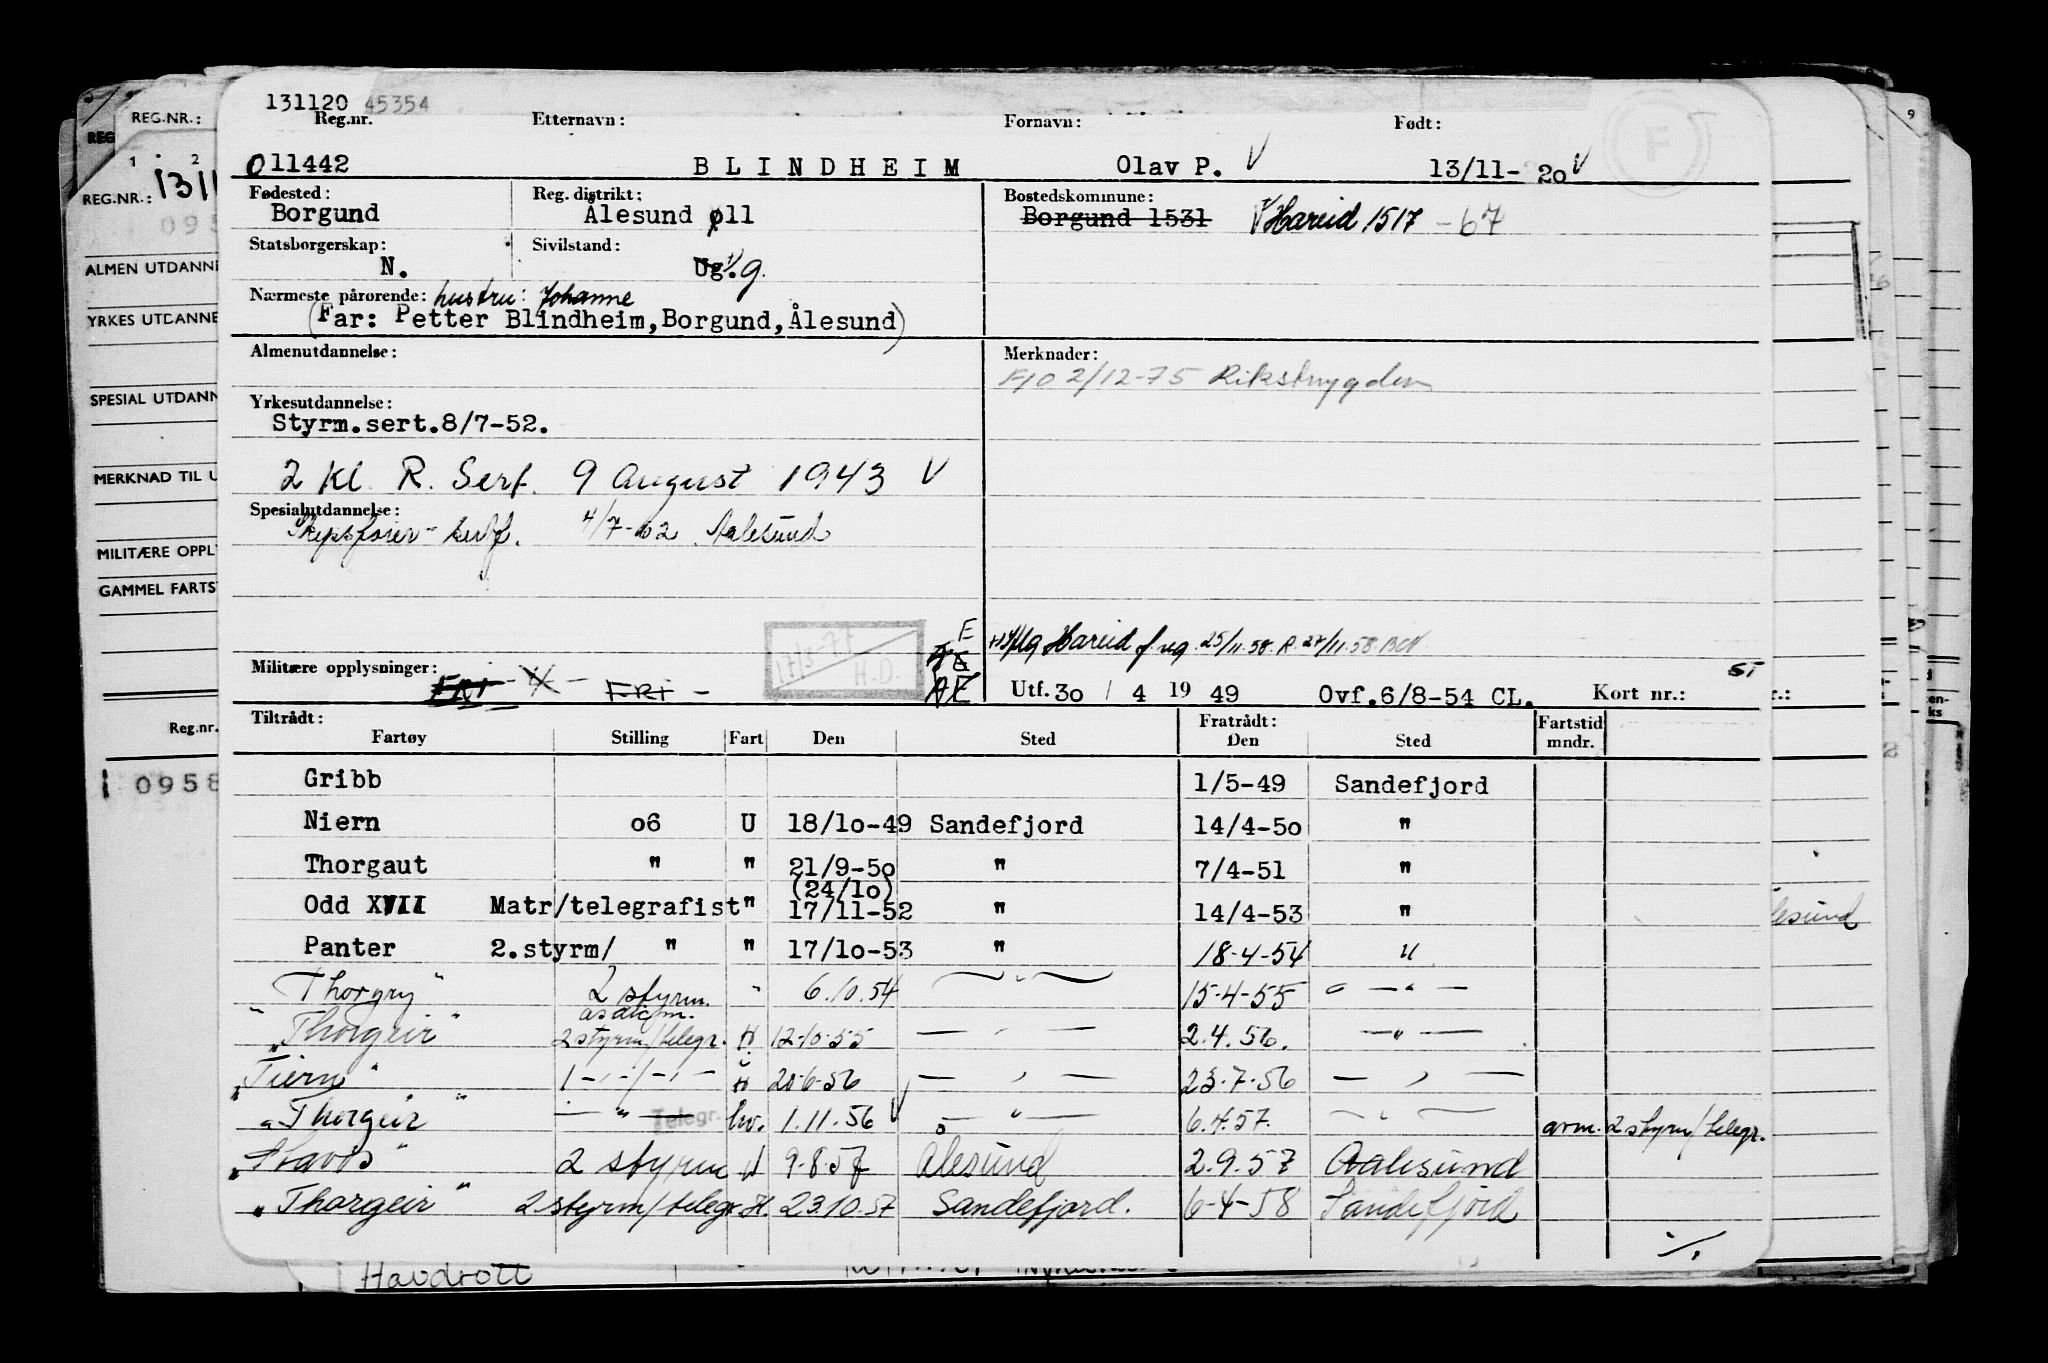 131120 45354
Reg.nr. Etternavn: Fornavn: Født:
011442 BLINDHEIM Olav P. V 13/11- 20 V
F
Fødested: Reg. distrikt: Bostedskommune:
Borgund Ålesund øll Borgund 1531 V Hareid 1517 -67
Statsborgerskap: Sivilstand:
N. Ug. g.
Nærmeste pårørende: hustru: Johanne
(Far: Petter Blindheim, Borgund, Ålesund)
Almenutdannelse: Merknader:
2/12-75 Rikstrygden
Yrkesutdannelse:
Styrm.sert.8/7-52.
2 Kl. R. Serf. 9 August 1943 V
Spesialutdannelse:
Skipsfører- 4/7-62 Aalesund
17/3-77
H.D.
E
AE
Hareid f. 25/11.58. R. 27/11.58.
Militære opplysninger:
FRI FRI -
Utf. 30 / 4 19 49 Ovf.6/8-54 CL. Kort nr.:
Tiltrådt: Fratrådt: Fartstid
Fartøy Stilling Fart Den Sted Den Sted mndr.
Gribb 1/5-49 Sandefjord
Niern o6 U 18/1o-49 Sandefjord 14/4-5o "
Thorgaut " " 21/9-5o " 7/4-51 "
(24/1o)
Odd XVII Matr/telegrafist " 17/11-52 " 14/4-53 "
Panter 2.styrm/ " " 17/1o-53 " 18-4-54 "
"Thorgry" 2 styrm. " 6.10.54 — " — 15-4-55 — " —
asdicm.
"Thorgeir" 2 styrm/telegr. H 12-10-55 — " — 2.4.56. — " —
"Tiern" H 20-6-56 — " — 23-7-56 — " —
"Thorgeir" — " — Telegr. hv. 1.11.56 V — " — 6.4.57. — " — 2 styrm/telegr.
2 styrm 9-8-57 Ålesund 2.9.57 Aalesund
"Thorgeir" 2 styrm/telegr. H. 23.10.57 Sandefjord. 6-4-58 Sandefjord
REG.NR.:
REG.NR.:
ALMEN UTDANNE
YRKES UTDANNE
SPESIAL UTDANN
MERKNAD TIL U
MILITÆRE OPPL
GAMMEL FARTS
Reg.nr.
0958
Havdrott